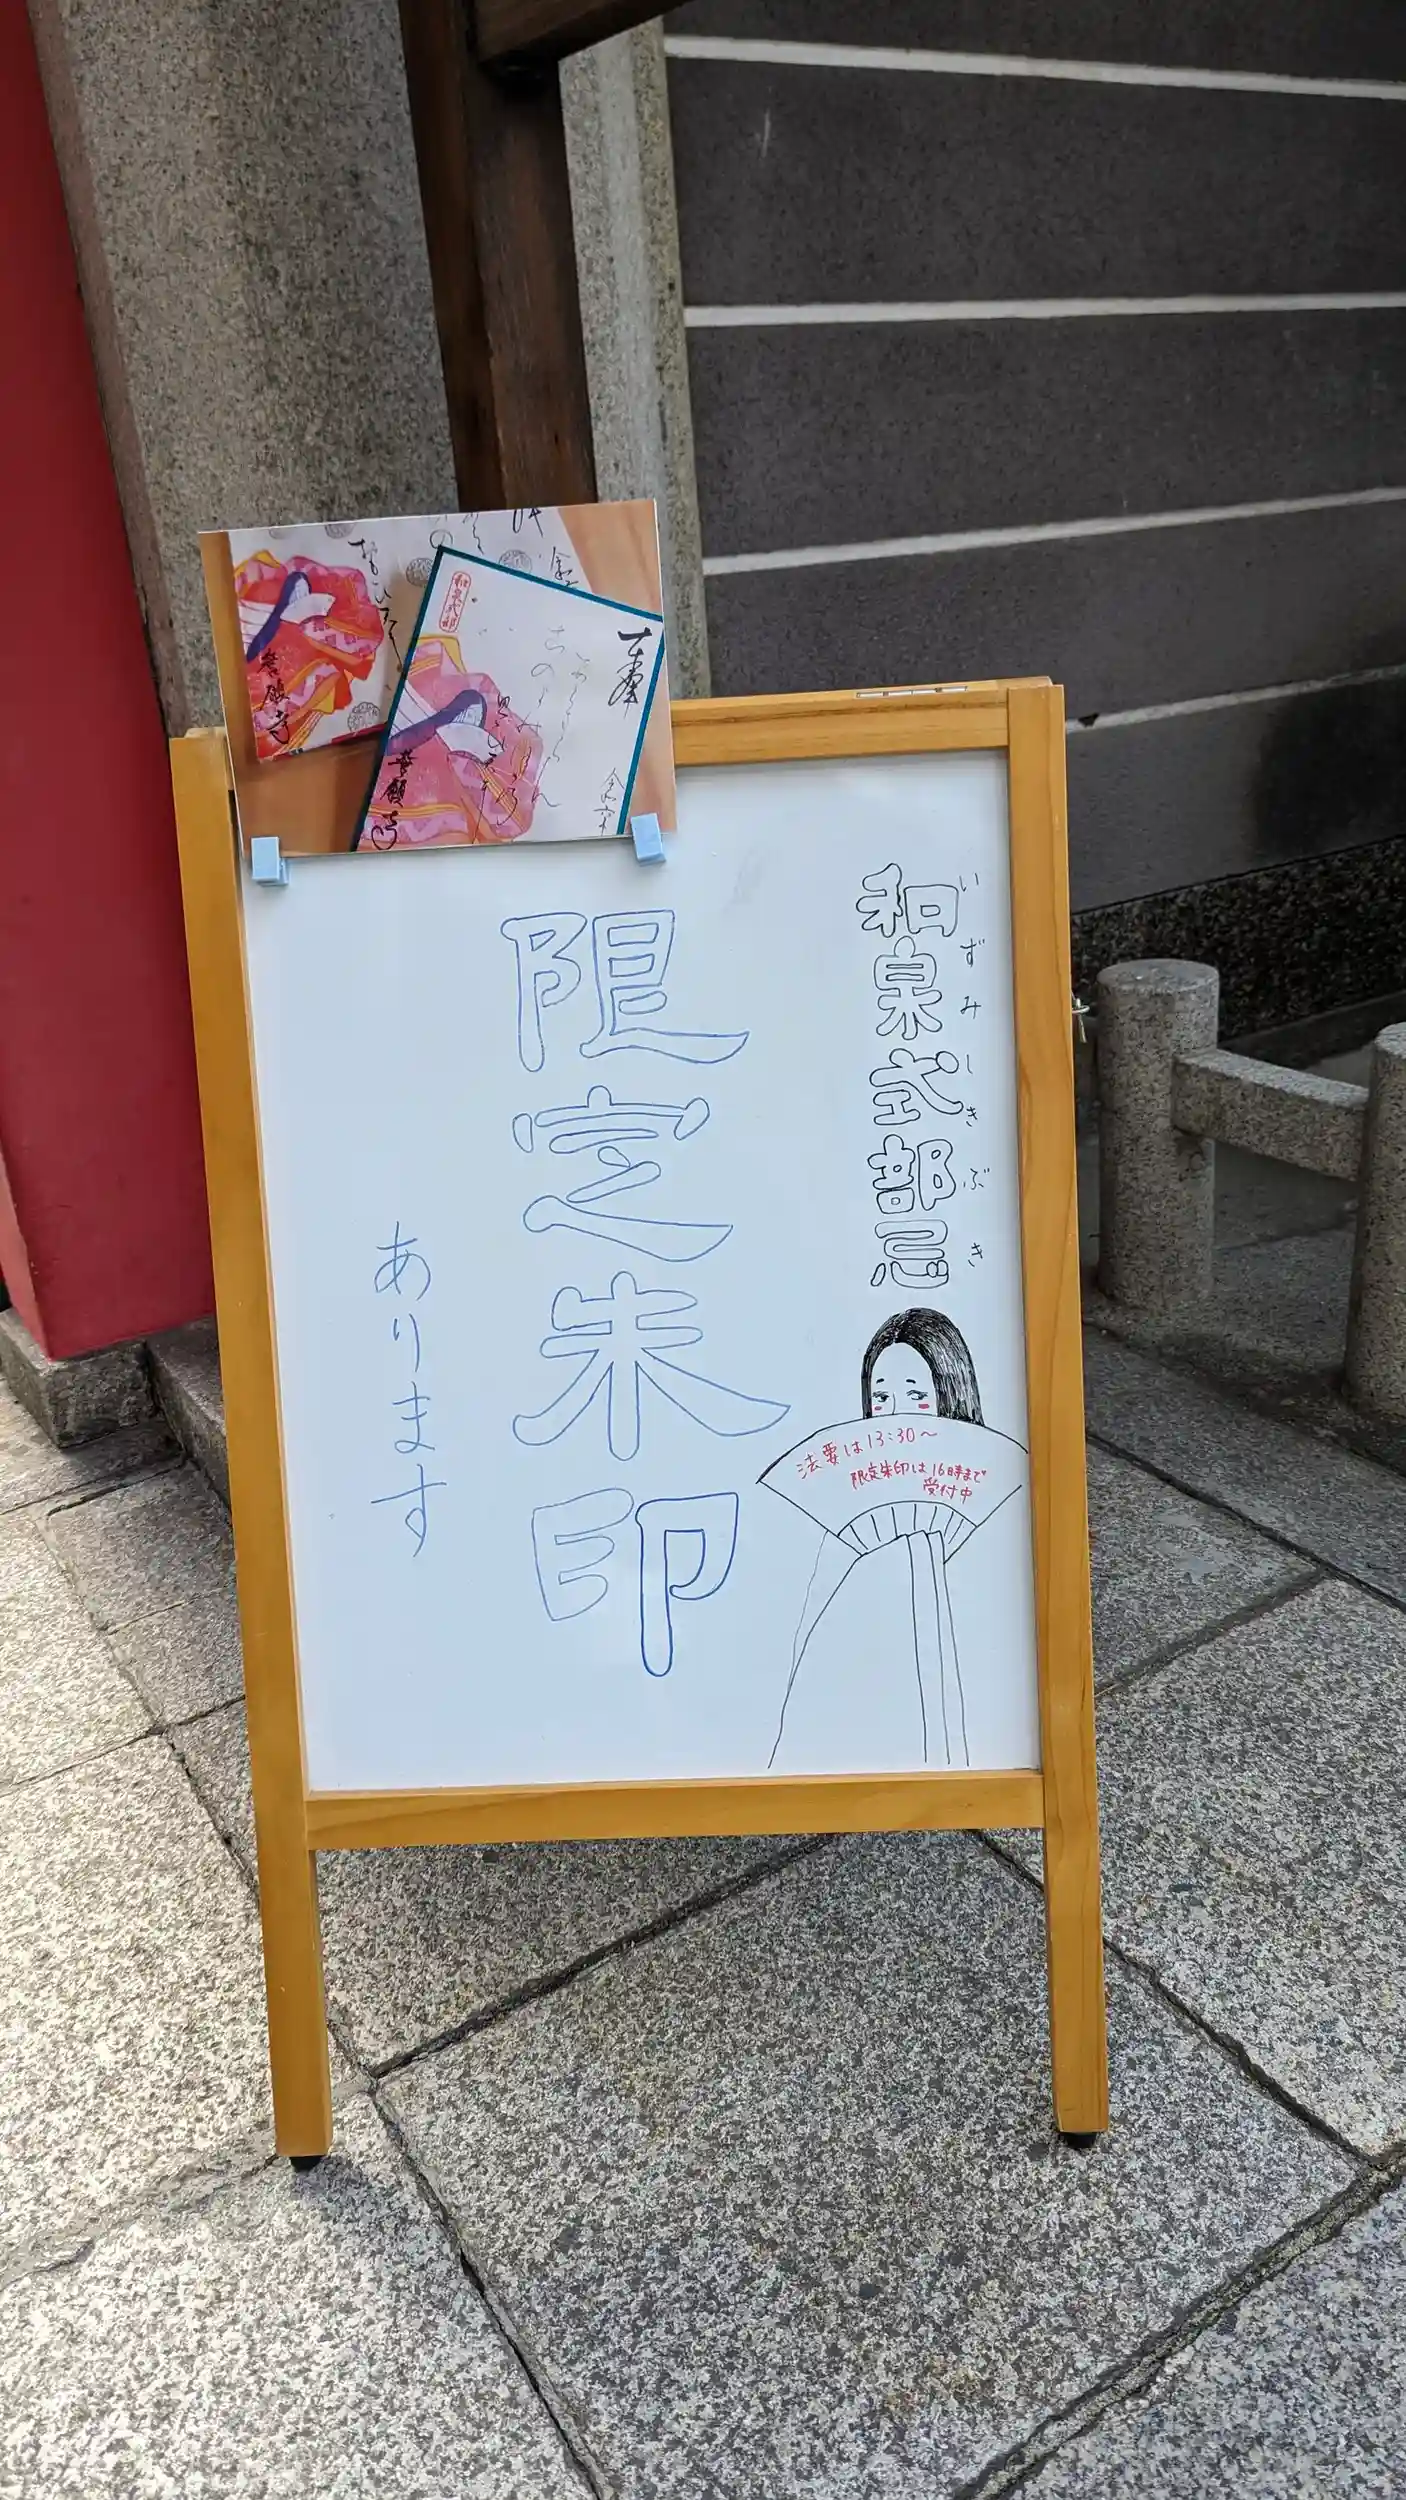 和泉式部忌
いずみしきぶき
限定朱印
あります
法要は13:30〜
限定朱印は16時まで
受付中
和泉式部
奉拝
誓願寺
誓願寺